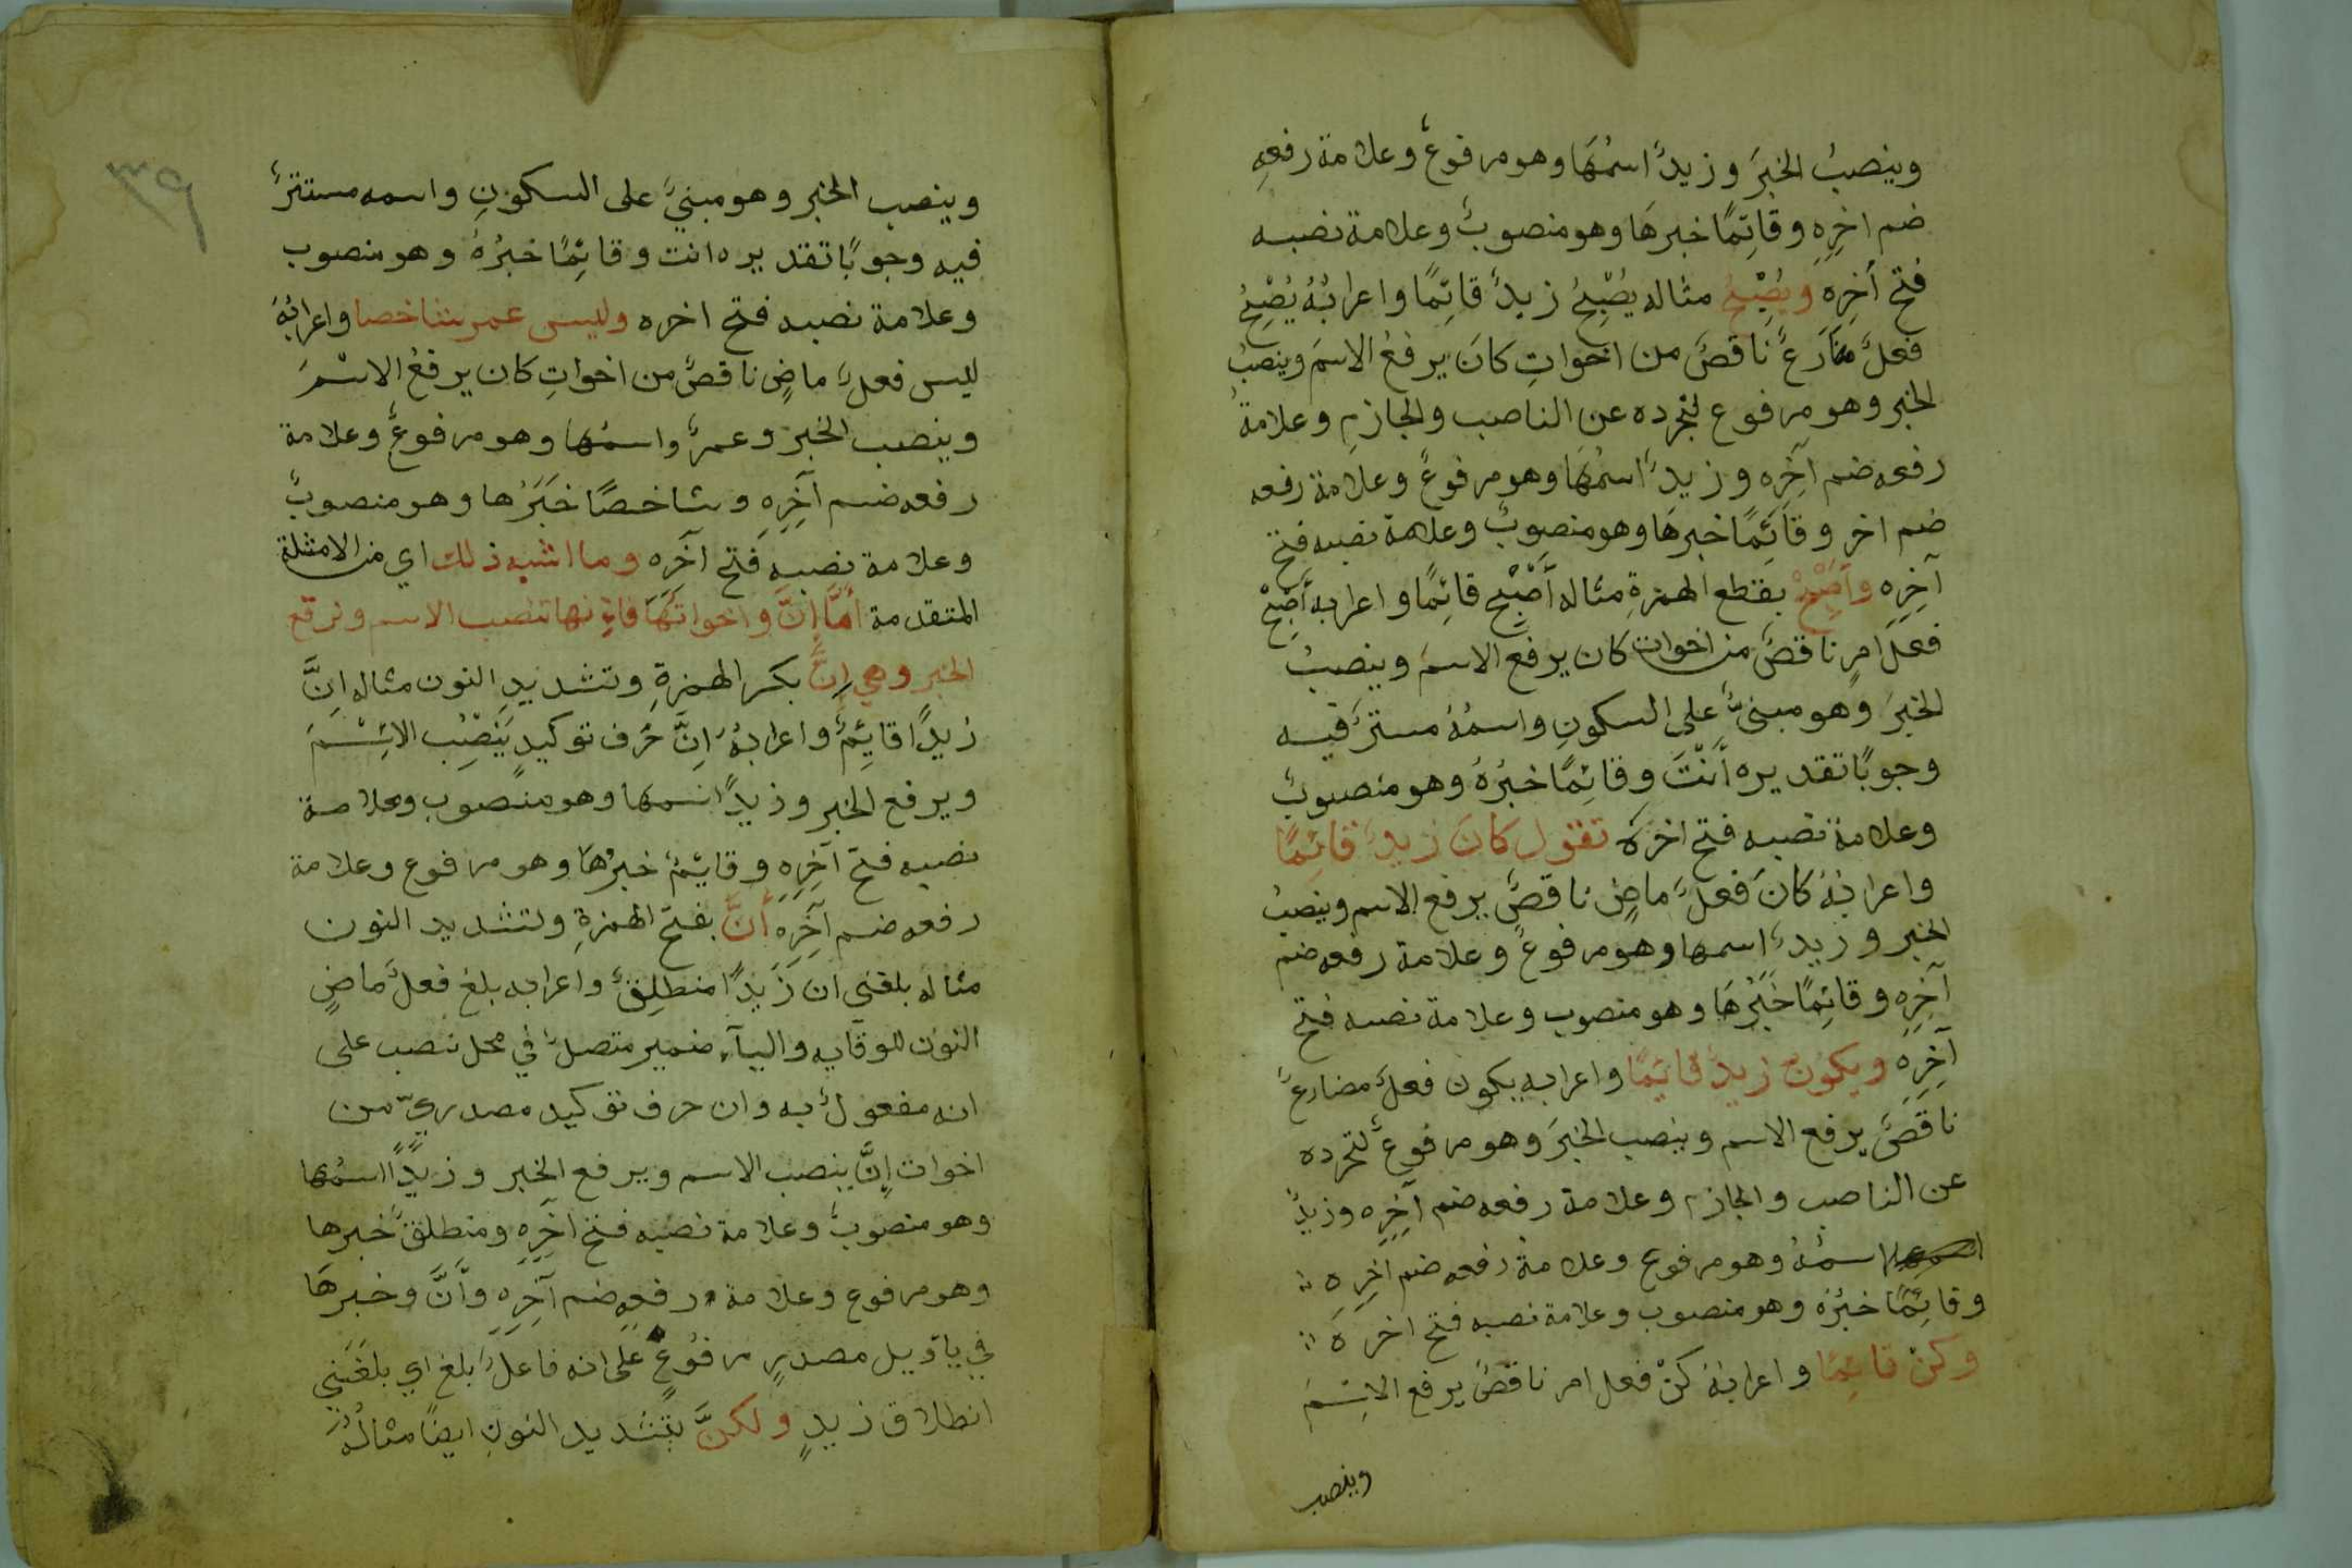 وينصبُ الخبرَ وزيدٌ اسمُهَا وهو مرفوعٌ وعلامة رفعهِ
ضم اخِرِهِ وقَائِمًا خبرهَا وهو منصوبٌ وعلامة نصبه
فتح أخِرِه ويُصْبِحُ مثاله يُصْبِحُ زيدٌ قائِمًا واعرابُهُ يُصْبِحُ
فعلٌ مضَارعٌ ناقصٌ من اخواتِ كانَ يرفعُ الاسمَ وينصبُ
الخبر وهو مرفوع لتجرده عن الناصب والجازمِ وعلامةُ
رفعه ضم آخِرِه وزيدٌ اسمُهَا وهو مرفوعٌ وعلامة رفعه
ضم اخرِ وقَائِمًا خبرهَا وهو منصوبٌ وعلامة نصبه فتح
آخِرِه وأَصْبِحْ بقطع الهمزةِ مثاله أَصْبِحْ قائِمًا واعرابه أَصْبِحْ
فعل امرٍ ناقصٌ من اخوات كان يرفع الاسمَ وينصبُ
الخبرَ وهو مبنىٌّ على السكونِ واسمُهُ مستترٌ فيه
وجوبًا تقديره أَنْتَ وقائِمًا خبرُهُ وهو منصوبٌ
وعلامة نصبه فتح اخره تقول كانَ زيدٌ قائِمًا
واعرابُهُ كانَ فعلٌ ماضٍ ناقصٌ يرفع الاسم وينصبُ
الخبر وزيدٌ اسمها وهو مرفوعٌ وعلامة رفعه ضم
آخِرِه وقائِمًا خَبَرُهَا وهو منصوب وعلامة نصبه فتح
آخِرِه ويكونُ زيدٌ قائِمًا واعرابه يكون فعلٌ مضارعٌ
ناقصٌ يرفع الاسم وينصب الخبرَ وهو مرفوعٌ لتجرده
عن الناصب والجازم وعلامة رفعه ضم آخِرِه وزيدٌ
اسمُهُ وهو مرفوع وعلامةُ رفعه ضم آخِرِه
وقائِمًا خبرُهُ وهو منصوب وعلامة نصبه فتح اخره
وكنْ قائِمًا واعرابُهُ كنْ فعل امر ناقصٌ يرفع الاِسْمَ
وينصب
٣٩
وينصب الخبر وهو مبنيٌّ على السكونِ واسمه مستترٌ
فيه وجوبًا تقديره انت وقائِمًا خبرُهُ وهو منصوب
وعلامة نصبه فتح اخره وليس عمر شاخصا واعرابُهُ
ليس فعلٌ ماضٍ ناقصٌ من اخواتِ كان يرفعُ الاسْمَ
وينصب الخبر وعمرٌ واسمُها وهو مرفوعٌ وعلامة
رفعه ضم آخِرِهِ وشاخصًا خَبَرُها وهو منصوبٌ
وعلامة نصبه فتح آخِرِه وما اشبه ذلك اي من الامثلة
المتقدمة أمَّا إنَّ واخواتَهَا فانها تنصب الاسم وترفع
الخبر وهي إنَّ بكسر الهمزةِ وتشديدِ النون مثاله إنَّ
زيدًا قايِمٌ واعرابهُ إنَّ حرف توكيدٍ يَنْصِبُ الاِسْمَ
ويرفع الخبر وزيدًا اسمها وهو منصوب وعلامة
نصبه فتح آخِرِه وقايِمٌ خبرُها وهو مرفوع وعلامة
رفعه ضم آخِرِهِ أنَّ بفتح الهمزةِ وتشديد النون
مثاله بلغني ان زَيدًا منطلِقٌ واعرابه بلغ فعلٌ ماضٍ
النون للوقايه واليآء ضمير متصلٌ في محل نصب على
انه مفعولٌ به وان حرف توكيد مصدريٌّ من
اخوات إنَّ ينصب الاسم ويرفع الخبر وزيدًا اسمُها
وهو منصوبٌ وعلامة نصبه فتح آخِرِهِ ومنطلقٌ خبرها
وهو مرفوع وعلامة رفعِهِ ضم آخِرِه وأنَّ وخبرهَا
في ياويل مصدرٍ مرفُوعٌ على انه فاعلٌ بلغ اي بلغَنَي
انطلاق زيدٍ ولكنَّ بتشديد النونِ ايضًا مثالُهُ